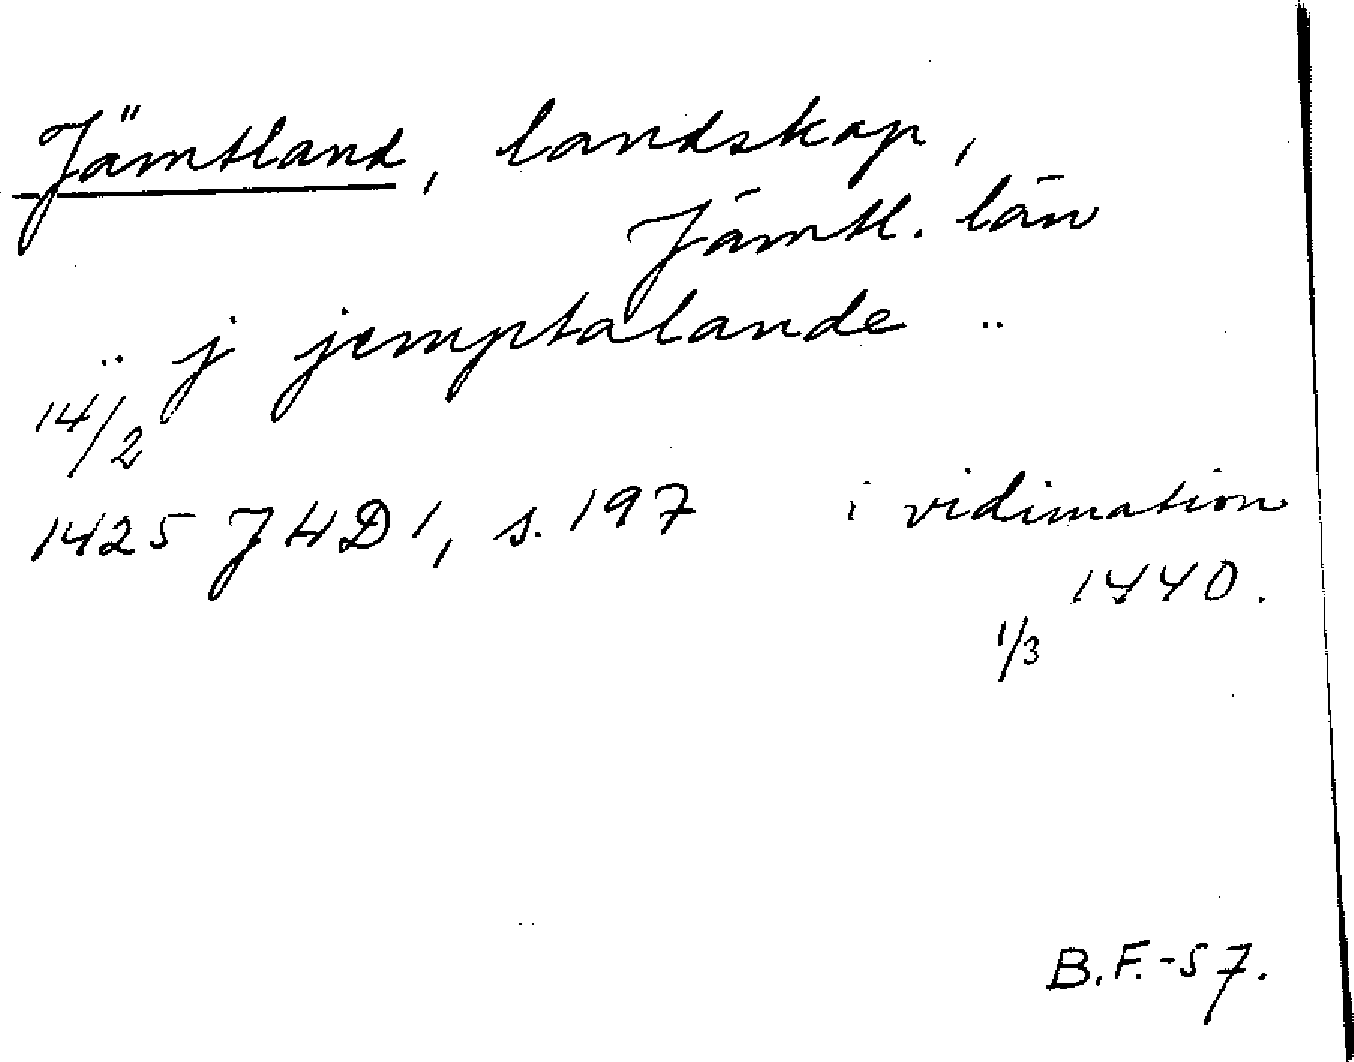 Jämtland, landskap,
Jämtl. län
.. j jemptalande ..
14/2
1425 J H D 1, s. 197 i vidimation
1440.
1/3
B.F.-57.